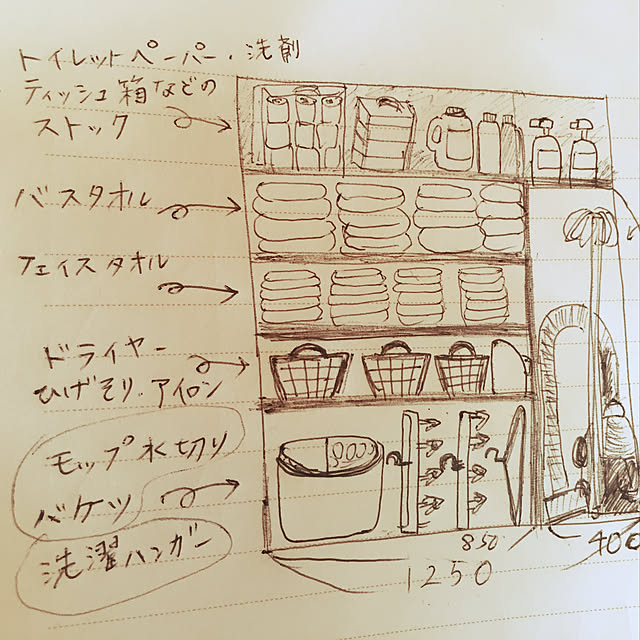 トイレットペーパー・洗剤
ティッシュ箱などの
ストック
バスタオル
フェイスタオル
ドライヤー
ひげそり・アイロン
モップ水切り
バケツ
洗濯ハンガー
850
400
1250